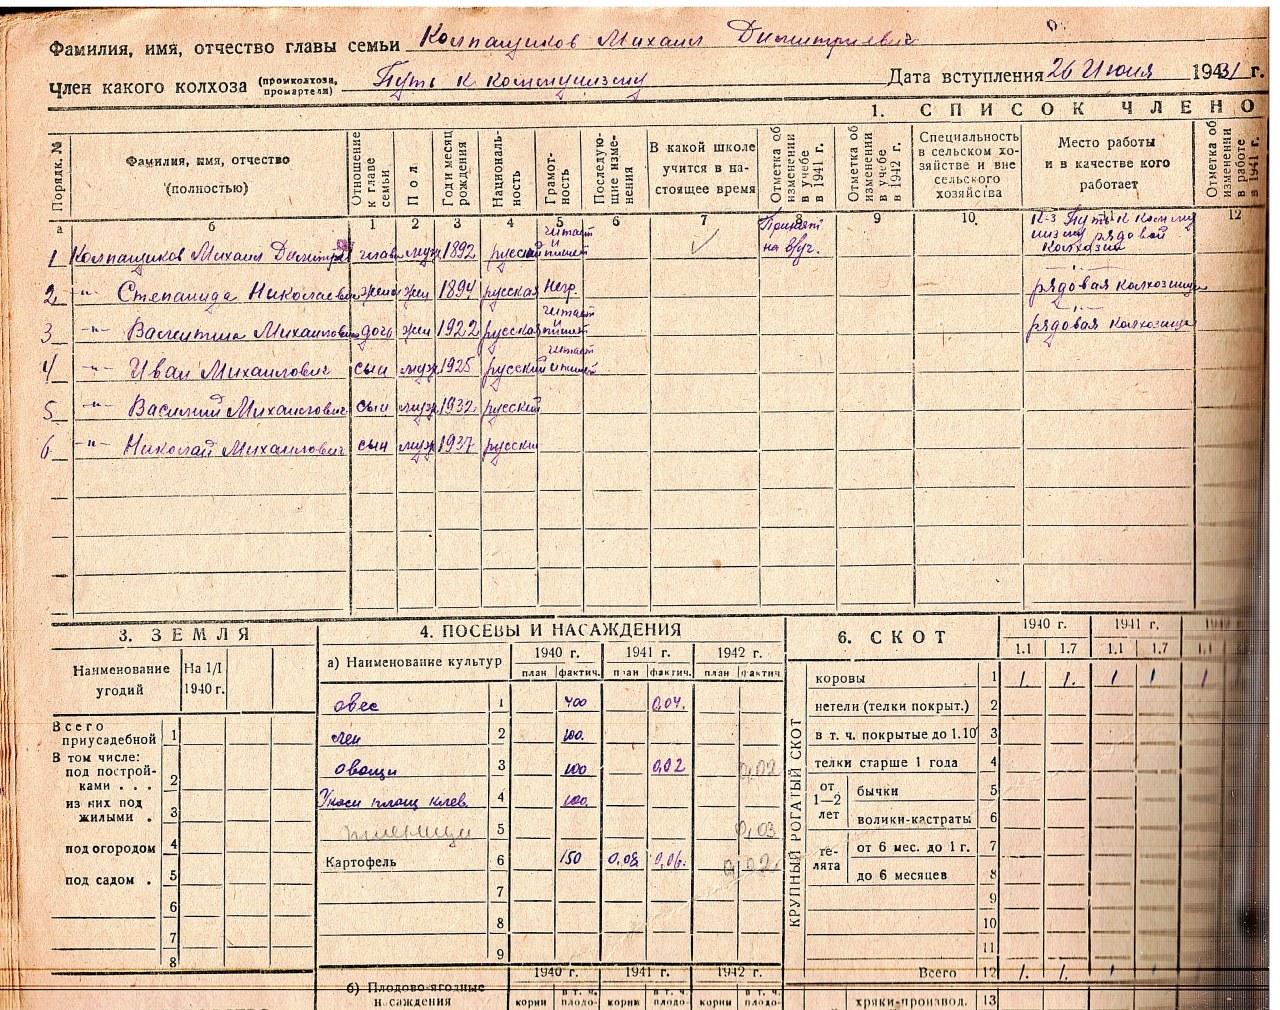 Фамилия, имя, отчество главы семьи Колпащиков Михаил Димитриевич
Член какого колхоза (промколхоза, промартели) Путь к коммунизму Дата вступления 26 Июля 1931 г.
1. СПИСОК ЧЛЕНО
Порядк. № Фамилия, имя, отчество (полностью) Отношение к главе семьи Пол Год и месяц рождения Националь-ность Грамот-ность Последую-щие изме-нения В какой школе учится в на-стоящее время Отметка об изменении в учебе в 1941 г. Отметка об изменении в учебе в 1942 г. Специальность в сельском хо-зяйстве и вне сельского хозяйства Место работы и в качестве кого работает Отметка об изменении в работе в 1941 г.
а б 1 2 3 4 5 6 7 8 9 10 11 12
1 Колпащиков Михаил Димитр глава муж 1892 русский читает и пишет на в/уч. К-з Путь к Коммунизму рядовой колхозник
2 -"- Степанида Николаевна жена жен 1894 русская негр. -"- рядовая колхозница
3 -"- Валентина Михаиловна дочь жен 1922 русская читает пишет -"- рядовая колхозница
4 -"- Иван Михаилович сын муж 1925 русский читает и пишет
5 -"- Василий Михаилович сын муж 1932 русский
6 -"- Николай Михаилович сын муж 1937 русский
3. ЗЕМЛЯ
Наименование угодий На 1/I 1940 г.
Всего приусадебной 1
В том числе:
под построй-ками . . . 2
из них под жилыми . 3
под огородом 4
под садом . 5
6
7
8
4. ПОСЕВЫ И НАСАЖДЕНИЯ
а) Наименование культур 1940 г. 1941 г. 1942 г.
план фактич. план фактич. план фактич
овес 1 400 0,04.
лен 2 100.
овощи 3 100 0,02 0,02
площ клев. 4 100.
пшеница 5 0,03
Картофель 6 150 0,08 0,06. 0,02
7
8
9
б) Плодово-ягодные насаждения 1940 г. 1941 г. 1942 г.
корни в т. ч. плодо- корни в т. ч. плодо- корни в т. ч. плодо-
6. СКОТ 1940 г. 1941 г.
1.1 1.7 1.1 1.7 1.1
КРУПНЫЙ РОГАТЫЙ СКОТ
коровы 1 1. 1. 1 1 1
нетели (телки покрыт.) 2
в т. ч. покрытые до 1.10 3
телки старше 1 года 4
от 1—2 лет бычки 5
волики-кастраты 6
те-лята от 6 мес. до 1 г. 7
до 6 месяцев 8
9
10
11
Всего 12 1. 1. 1 1 1
хряки-производ. 13